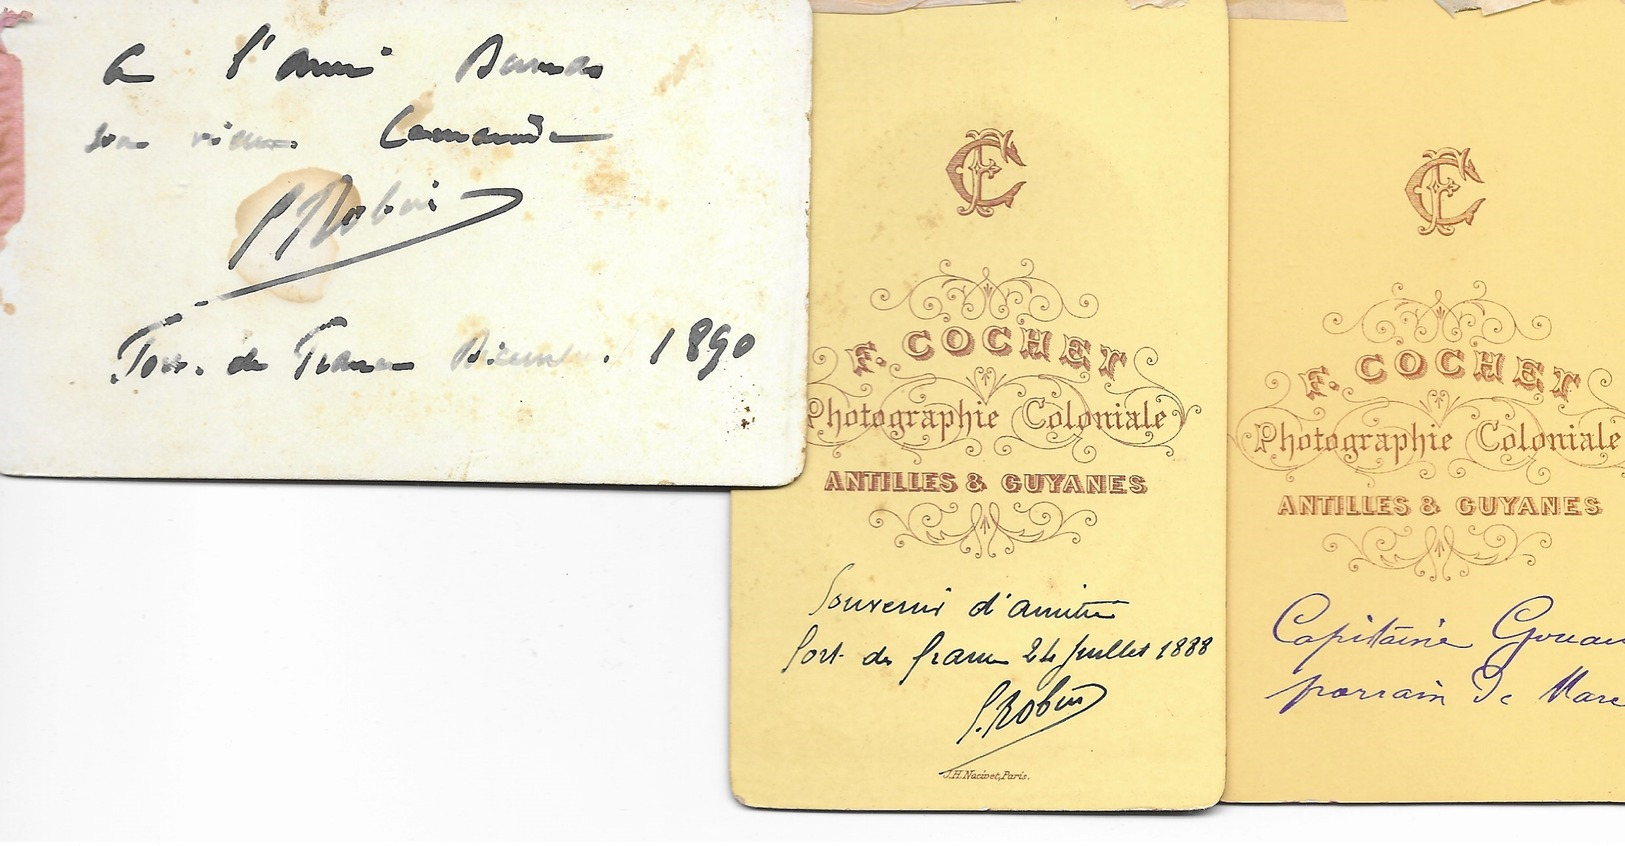 A l'ami Dumas
son vieux Camarade
Robin
Fort. de France Décembre. 1890
FC
F. COCHET
Photographie Coloniale
ANTILLES & GUYANES
Souvenir d'amitié
Fort de france 24 Juillet 1888
Robin
J.H. Nacivet, Paris.
FC
F. COCHET
Photographie Coloniale
ANTILLES & GUYANES
Capitaine
parrain de Marc